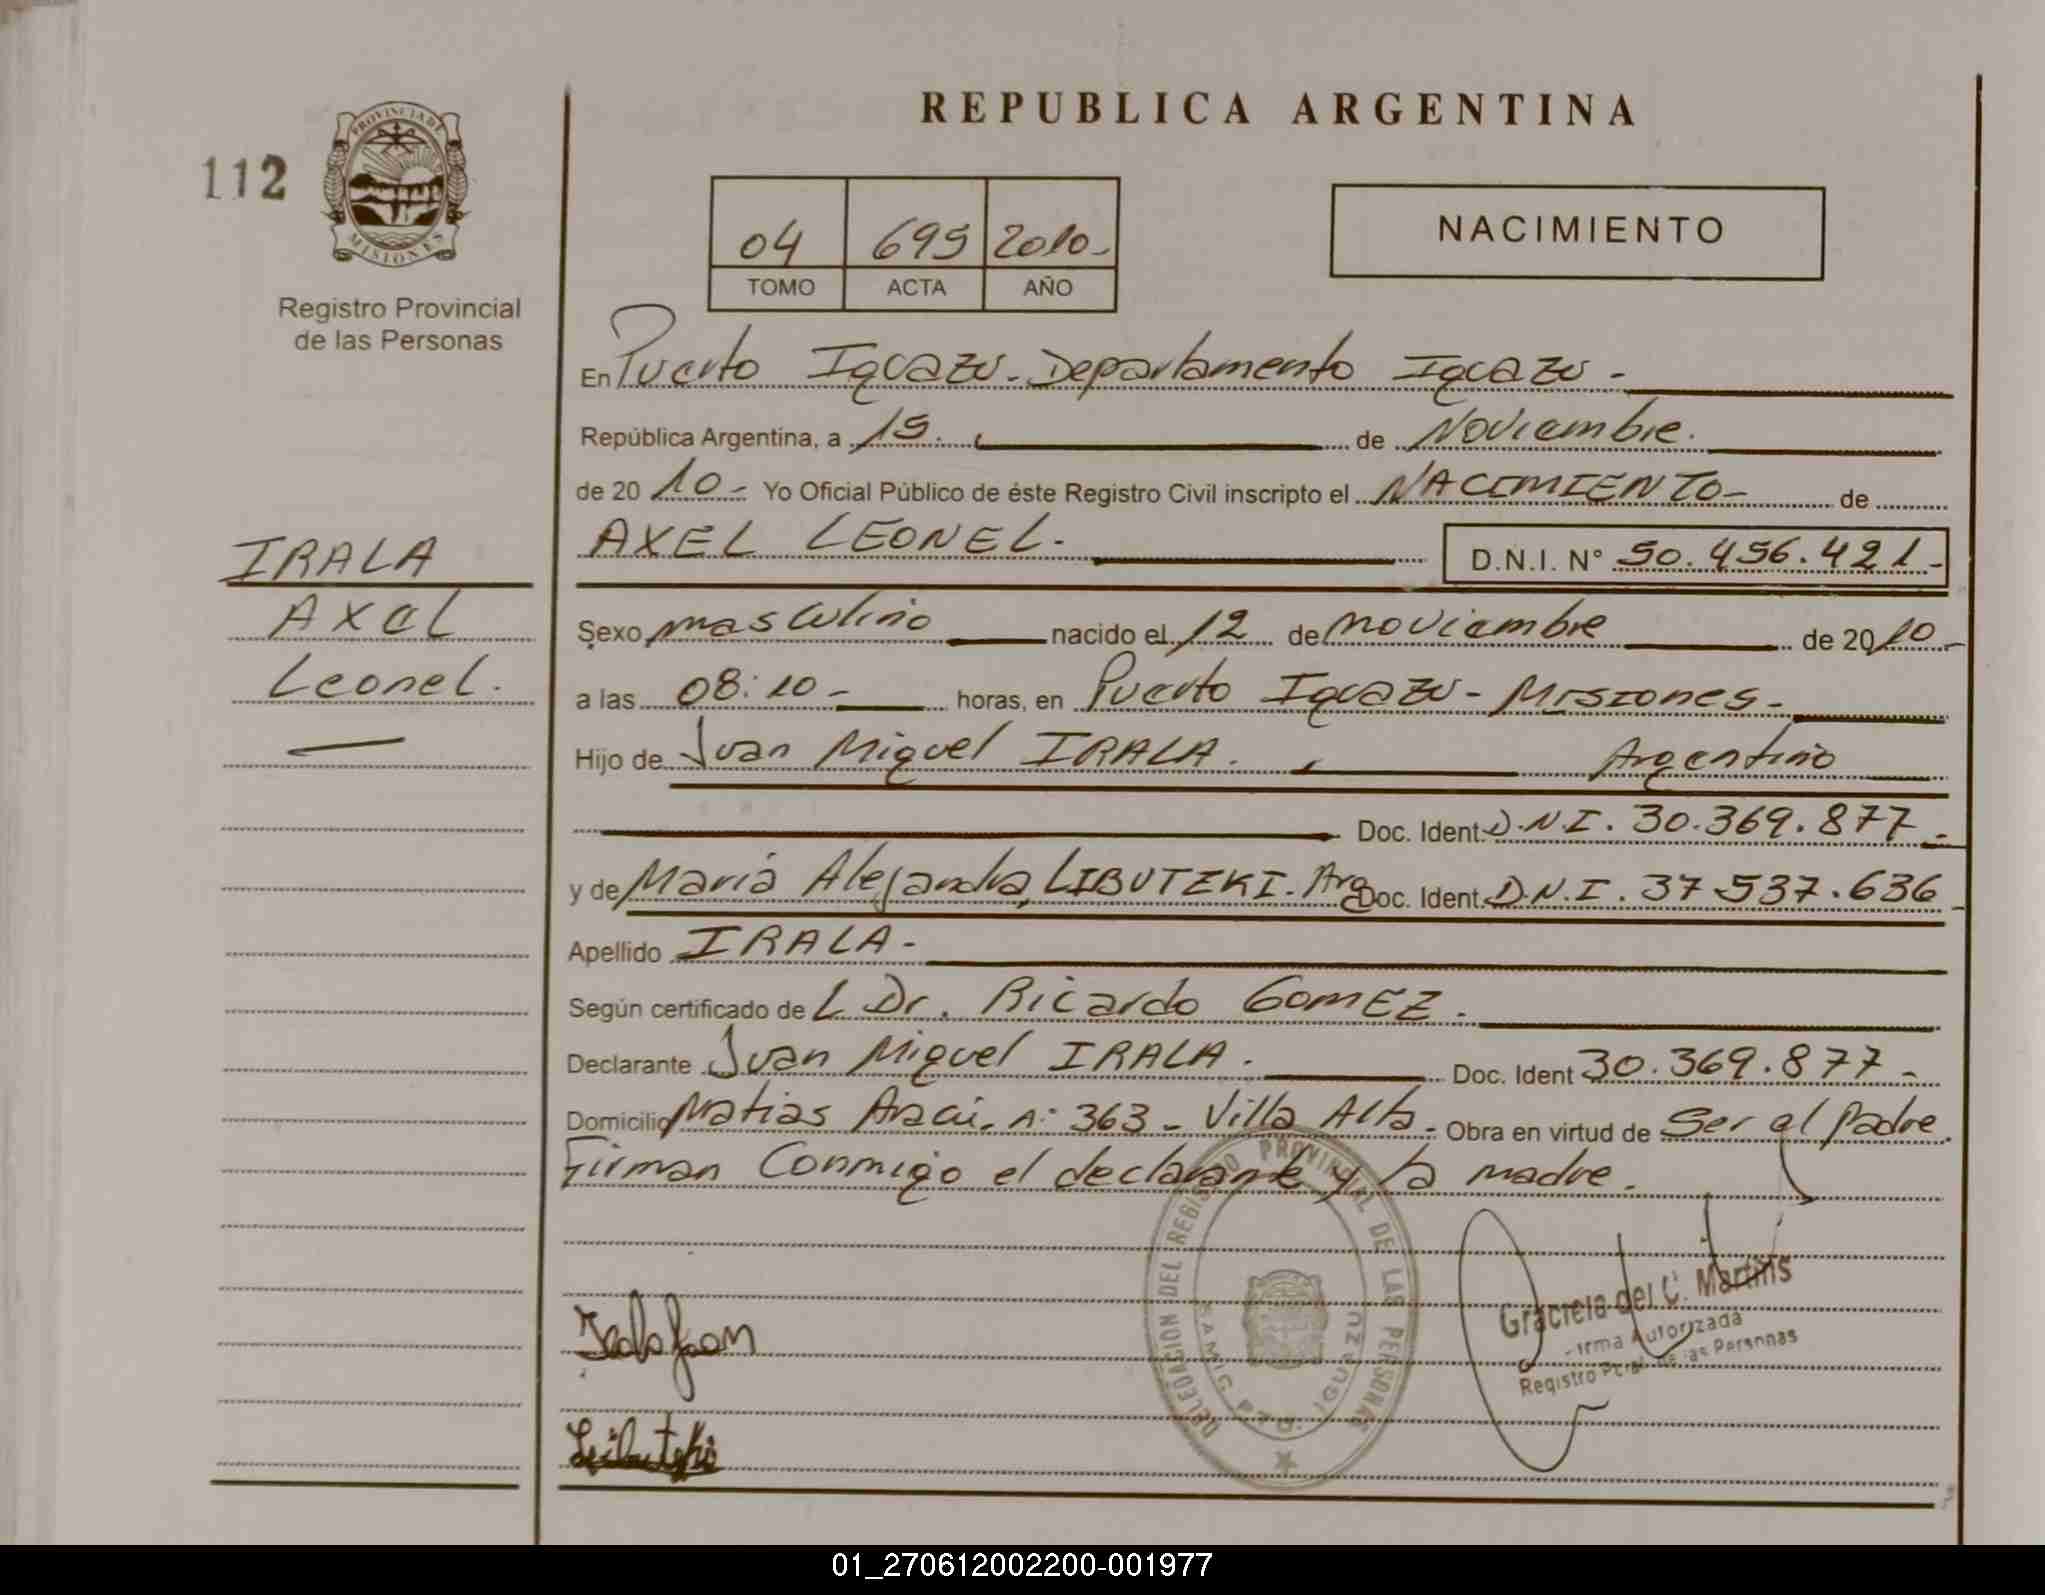 REPUBLICA ARGENTINA
112
PROVINCIA DE
MISIONES
Registro Provincial
de las Personas
04 699 2010-
TOMO ACTA AÑO
NACIMIENTO
En Puerto Iguazu - Departamento Iguazu -
República Argentina, a 19. de Noviembre.
de 20 10 - Yo Oficial Público de éste Registro Civil inscripto el NACIMIENTO- de
AXEL LEONEL. D.N.I. N° 50.456.421-
IRALA
Axel
Leonel.
Sexo masculino nacido el 12 de noviembre de 2010-
a las 08:10 - horas, en Puerto Iguazu - Misiones -
Hijo de Juan Miguel IRALA. Argentino
Doc. Ident. D.N.I. 30.369.877-
y de Maria Alejandra LIBUTZKI. Arg Doc. Ident. D.N.I. 37.537.636-
Apellido IRALA-
Según certificado de L Dr. Ricardo GOMEZ.
Declarante Juan Miguel IRALA. Doc. Ident 30.369.877-
Domicilio Matias N° 363 - Villa Alta - Obra en virtud de Ser el Padre.
Firman Conmigo el declarante y la madre.
DELEGACION DEL REGISTRO PROVINCIAL DE LAS PERSONAS
PTO. IGUAZU
Graciela del C. Martins
Firma Autorizada
Registro Pcial. de las Personas
Libutzki
01_270612002200-001977